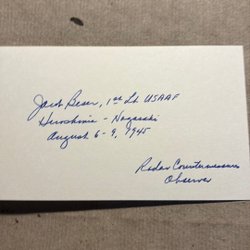 Jacob Beser, 1st Lt USAAF
Hiroshima - Nagasaki
August 6-9, 1945
Radar Countermeasures
Observer